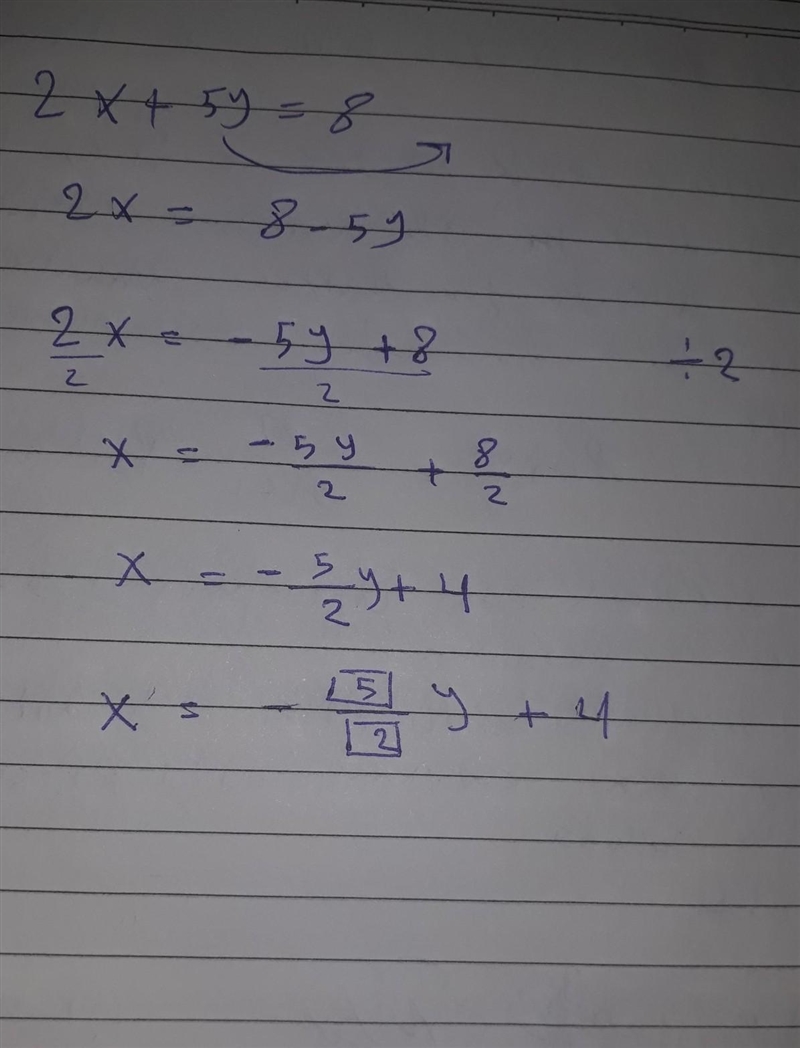 2x + 5y = 8
2x = 8 - 5y
2/2 x = - 5y + 8/2 ÷2
x = - 5y/2 + 8/2
x = - 5/2 y + 4
x = - 5/2 y + 4